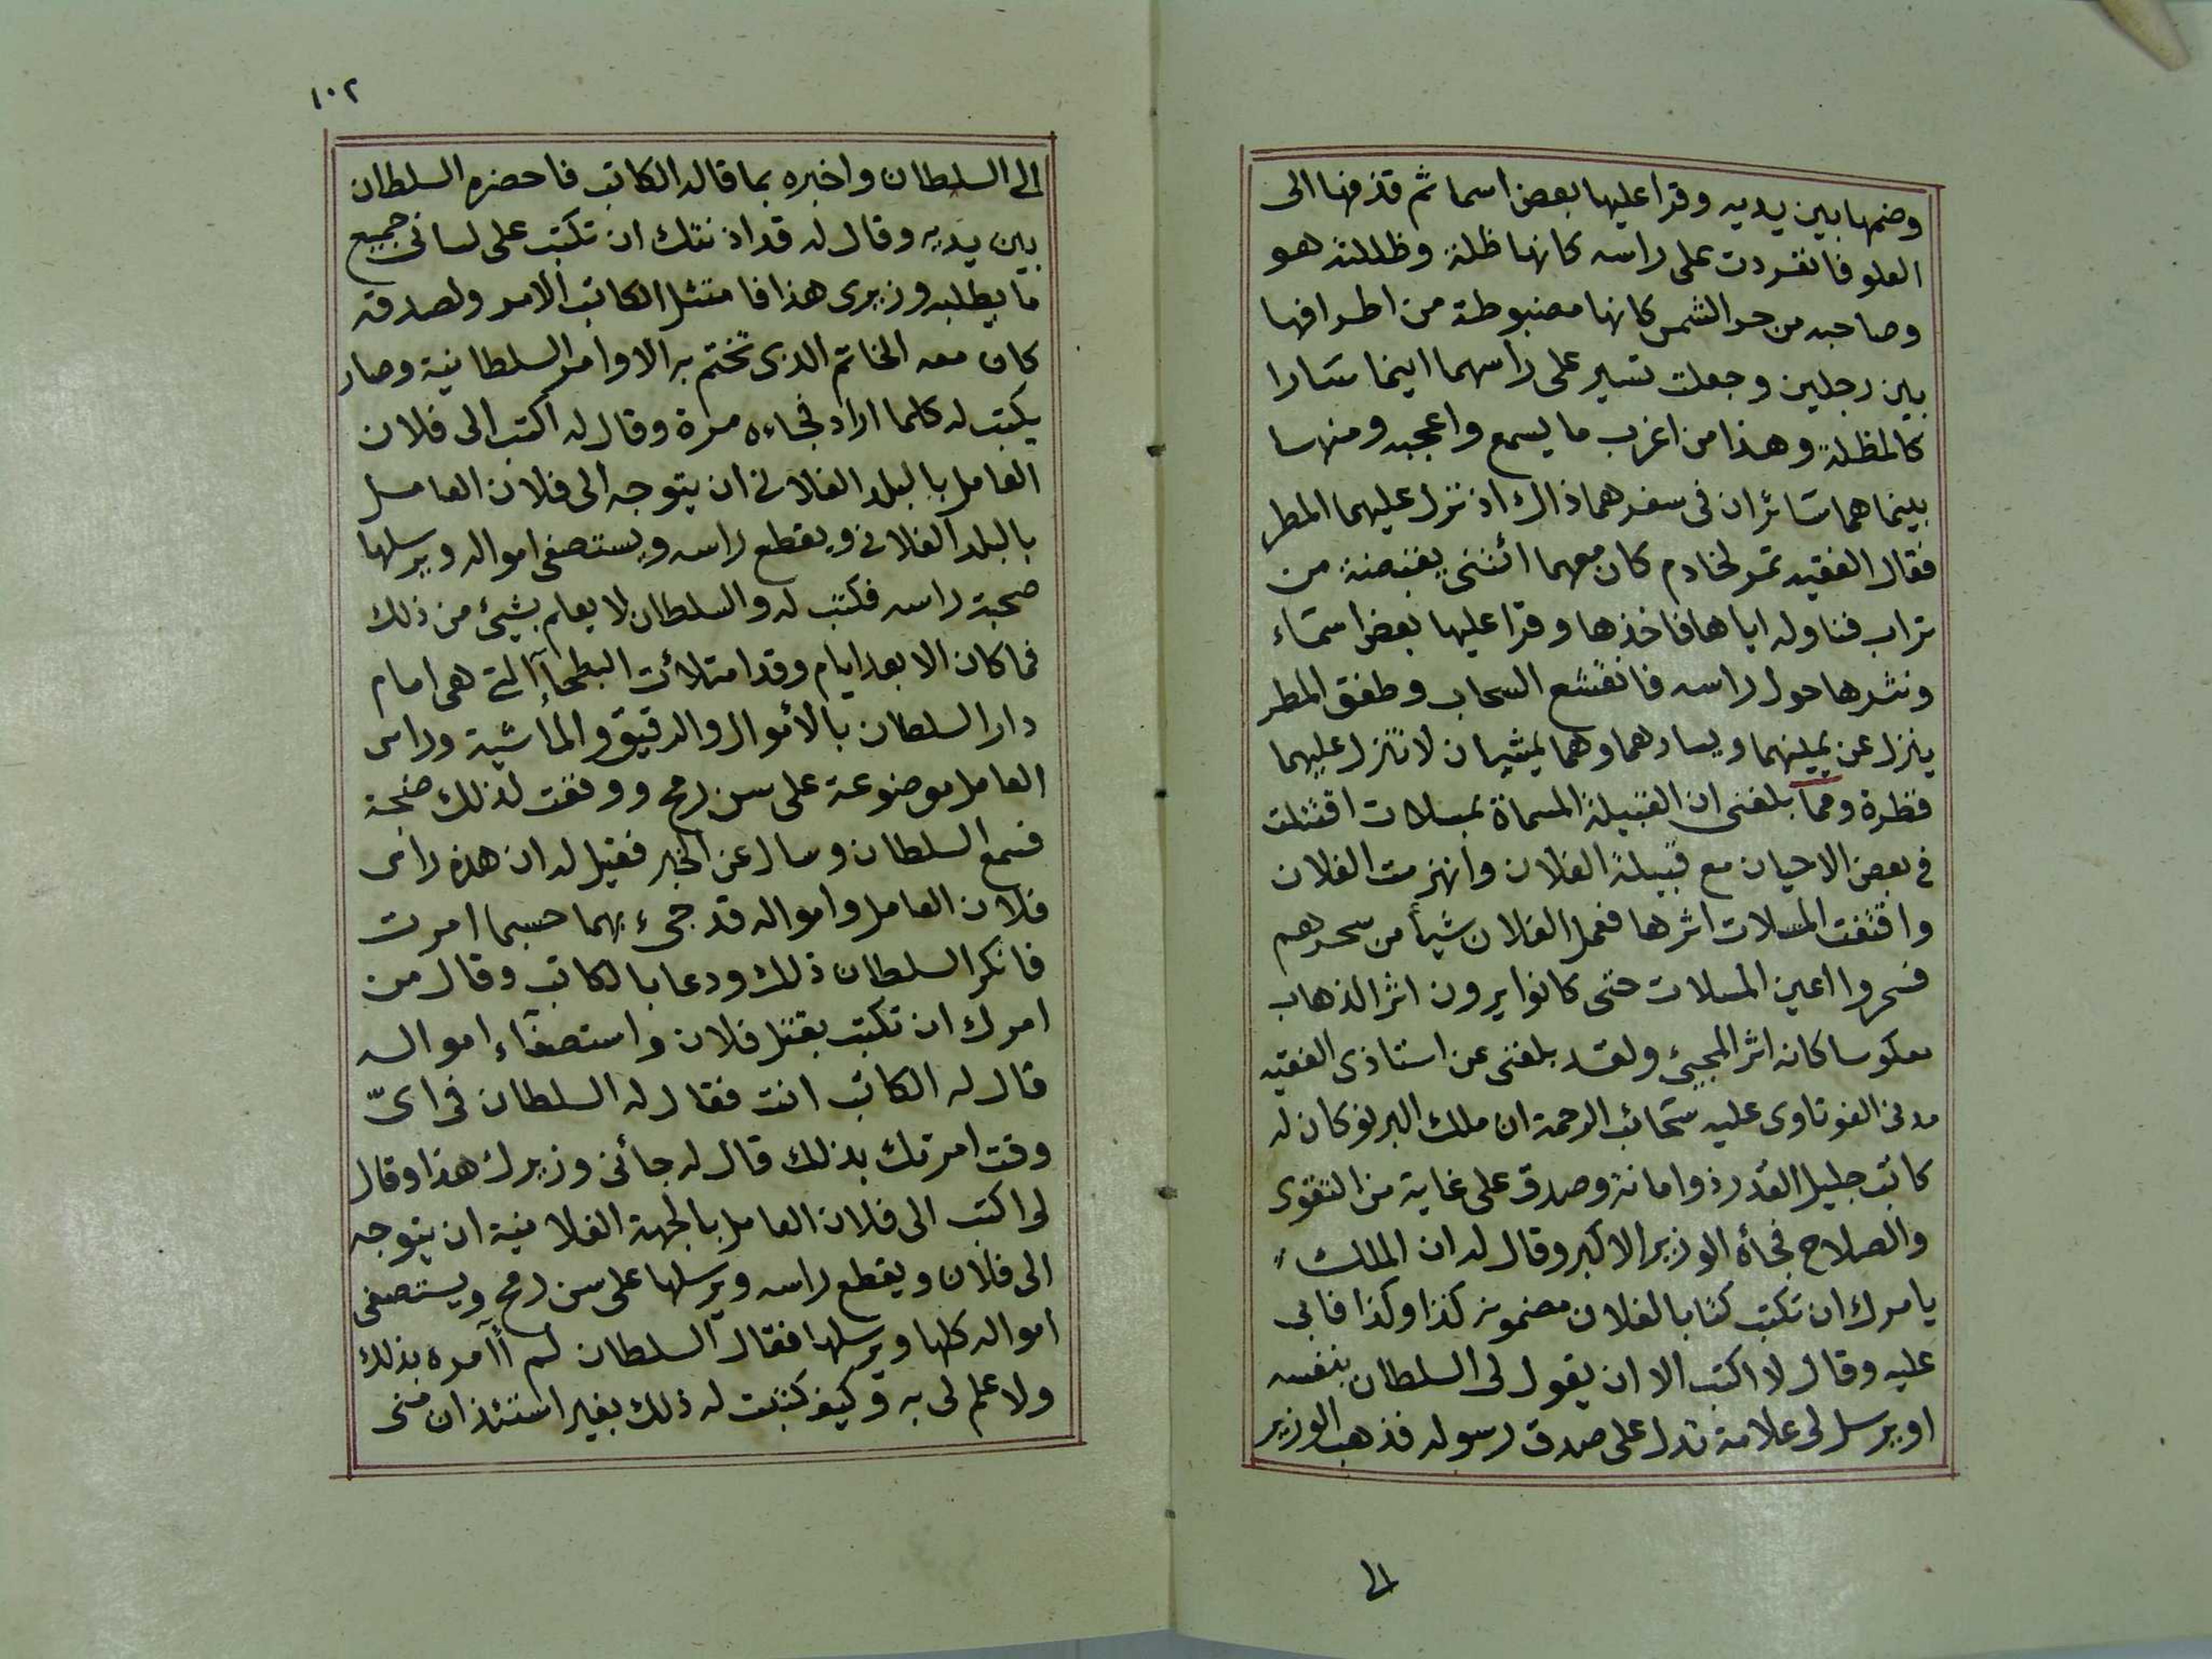 وضمها بين يديه وقرا عليها بعض اسما ثم قذفها الى
العلو فانفردت على راسه كانها ظلة وظللته هو
وصاحبه من حر الشمس كانها مضبوطة من اطرافها
بين رجلين وجعلت تسير على راسهما اينما سارا
كالمظلة وهذا من اغرب ما يسمع واعجبه ومنها
بينما هما سائران فى سفرهما ذاك اذ نزل عليهما المطر
فقال الفقيه تمر لخادم كان معهما ائتنى بقبضة من
تراب فناوله اياها فاخذها وقرا عليها بعض اسماء
ونثرها حول راسه فانقشع السحاب وطفق المطر
ينزل عن يمينهما ويسارهما وهما يمشيان لا تنزل عليهما
قطرة ومما بلغنى ان القبيلة المسماة بمسلات اقتتلت
فى بعض الاحيان مع قبيلة الفلان وانهزمت الفلان
واقتفت المسلات اثرها فعمل الفلان شيأ من سحرهم
فسحروا اعين المسلات حتى كانوا يرون اثر الذهاب
معكوسا كانه اثر المجيئ ولقد بلغنى عن استاذى الفقيه
مدنى الفوتاوى عليه سحائب الرحمة ان ملك البرنو كان له
كاتب جليل القدر ذو امانة وصدق على غاية من التقوى
والصلاح فجأه الوزير الاكبر وقال له ان الملك
يامرك ان تكتب كتابا لفلان مضمونه كذا وكذا فابى
عليه وقال لا اكتب الا ان يقول لى السلطان بنفسه
او يرسل لى علامة تدل على صدق رسوله فذهب الوزير
الى
١٠٢
الى السلطان واخبره بما قاله الكاتب فاحضره السلطان
بين يديه وقال له قد اذنتك ان تكتب على لسانى جميع
ما يطلبه وزيرى هذا فامتثل الكاتب الامر ولصدقه
كان معه الخاتم الذى تختم به الاوامر السلطانية وصار
يكتب له كلما اراد فجاءه مرة وقال له اكتب الى فلان
العامل بالبلد الفلانى ان يتوجه الى فلان العامل
بالبلد الفلانى ويقطع راسه ويستصفى امواله ويرسلها
صحبة راسه فكتب له والسلطان لا يعلم بشيئ من ذلك
فما كان الا بعد ايام وقد امتلأت البطحآ التى هى امام
دار السلطان بالأموال والرقيق والماشية وراس
العامل موضوعة على سن رمح ووقعت لذلك ضجة
فسمع السلطان وسال عن الخبر فقيل له ان هذه راس
فلان العامل وامواله قد جىء بهما حسبما امرت
فانكر السلطان ذلك ودعا بالكاتب وقال من
امرك ان تكتب بقتل فلان واستصفاء امواله
قال له الكاتب انت فقال له السلطان فى اىّ
وقت امرتك بذلك قال له جائنى وزيرك هذا وقال
لى اكتب الى فلان العامل بالجهة الفلانية ان يتوجه
الى فلان ويقطع راسه ويرسلها على سن رمح ويستصفى
امواله كلها ويرسلها فقال السلطان لم أآمره بذلك
ولا علم لى به وكيف كتبت له ذلك بغير استئذان منى